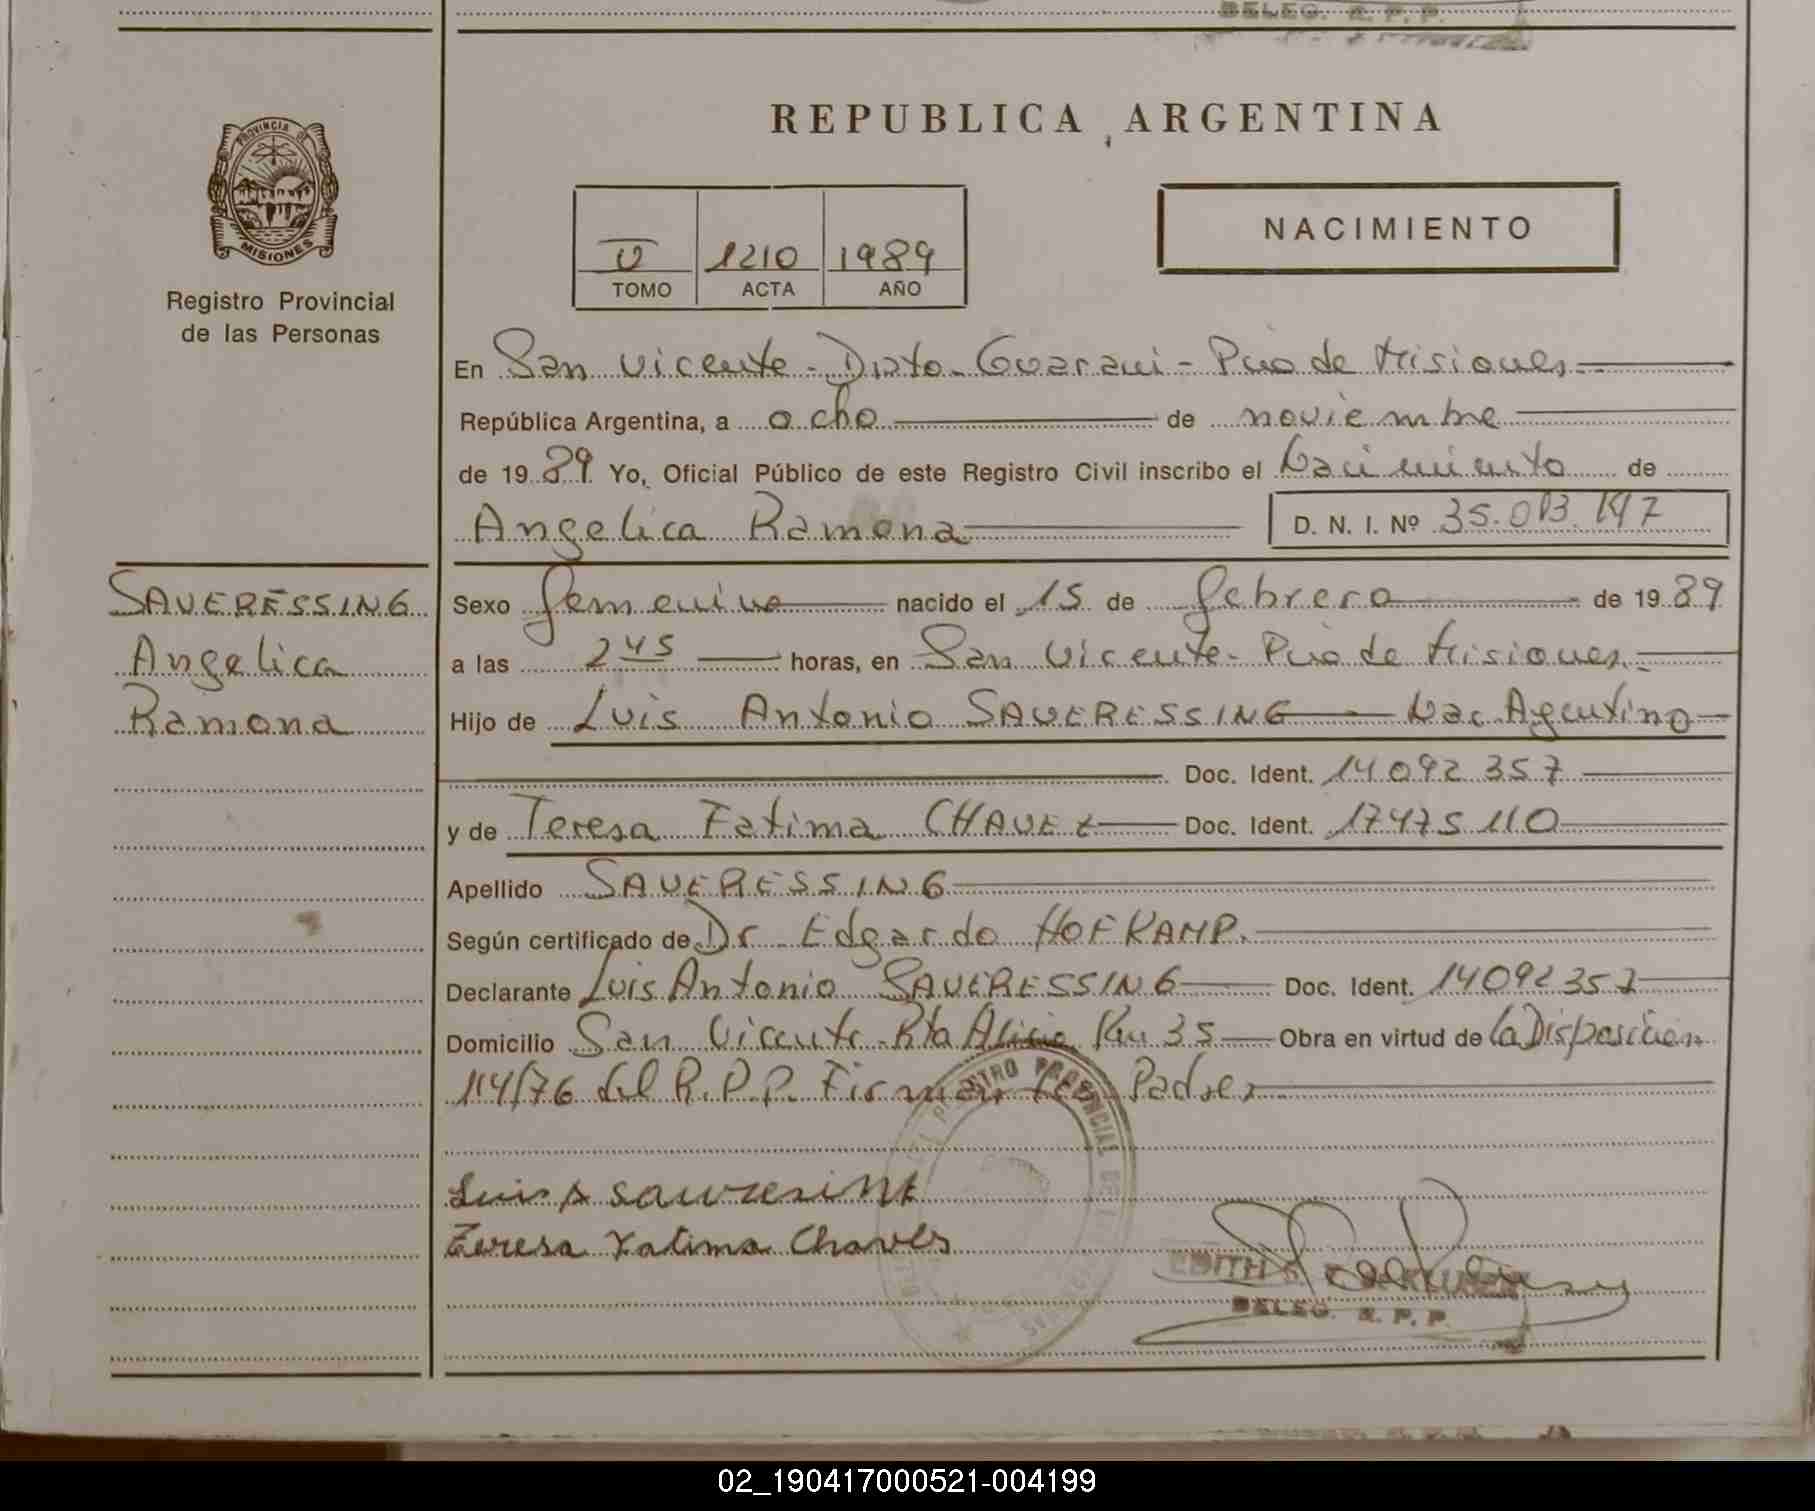 DELEG. R. P. P.
REPUBLICA ARGENTINA
PROVINCIA DE
MISIONES
Registro Provincial
de las Personas
NACIMIENTO
V 1210 1989
TOMO ACTA AÑO
En San Vicente - Dpto - Guarani - Pcia de Misiones
República Argentina, a ocho de noviembre
de 1989 Yo, Oficial Público de este Registro Civil inscribo el Nacimiento de
Angelica Ramona D. N. I. Nº 35.013.147
SAUERESSING
Angelica
Ramona
Sexo femenino nacido el 15 de febrero de 1989
a las 2 45 horas, en San Vicente - Pcia de Misiones
Hijo de Luis Antonio SAUERESSING Nac. Agentino
Doc. Ident. 14092357
y de Teresa Fatima CHAVEZ Doc. Ident. 17475110
Apellido SAUERESSING
Según certificado de Dr Edgardo HOFKAMP.
Declarante Luis Antonio SAUERESSING Doc. Ident. 14092357
Domicilio San Vicente - Rta Alicia Km 35 Obra en virtud de la Disposicion
114/76 del R.P.P. Firman los Padres
REGISTRO PROVINCIAL DE LAS PERSONAS
Luis A
Teresa Fatima Chaves
EDITH
DELEG. R. P. P.
02_190417000521-004199